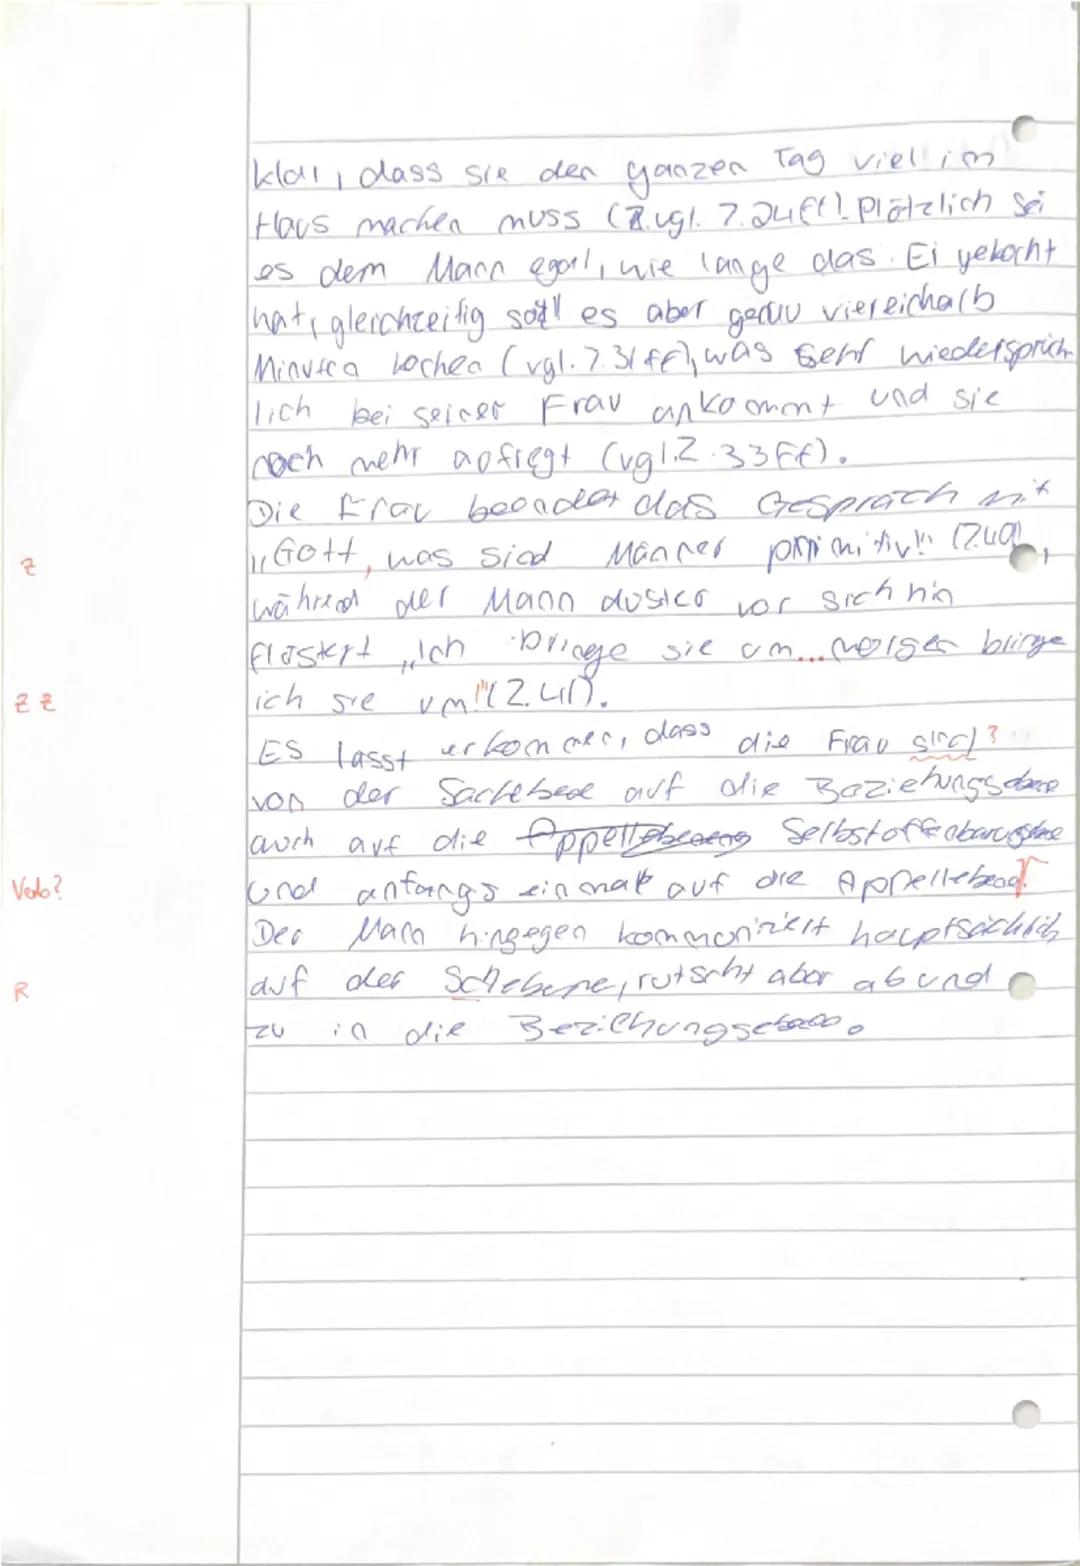 klar, dass sie den ganzen Tag viel im
Haus machen muss (vgl. Z.24ff). Plötzlich sei
es dem Mann egal, wie lange das Ei gekocht
hat, gleichzeitig soll es aber genau viereinhalb
Minuten kochen (vgl. Z.31ff), was sehr wiedersprüch-
lich bei seiner Frau ankommt und sie
noch mehr aufregt (vgl. Z.33ff).
Die Frau beendet das Gespräch mit
Z
„Gott, was sind Männer primitiv!" (Z.40),
während der Mann düster vor sich hin
flüstert „Ich bringe sie um... morgen bringe
Z Z
ich sie um!" (Z.41).
ES lässt erkennen, dass die Frau sich ?
von der Sachebene auf die Beziehungsebene
auch auf die Appellebene Selbstoffenbarungsebene
Verb?
und anfangs einmal auf die Appellebene.
Der Mann hingegen kommuniziert hauptsächlich
R
auf der Schebene, rutscht aber ab und
zu in die Beziehungsebene.